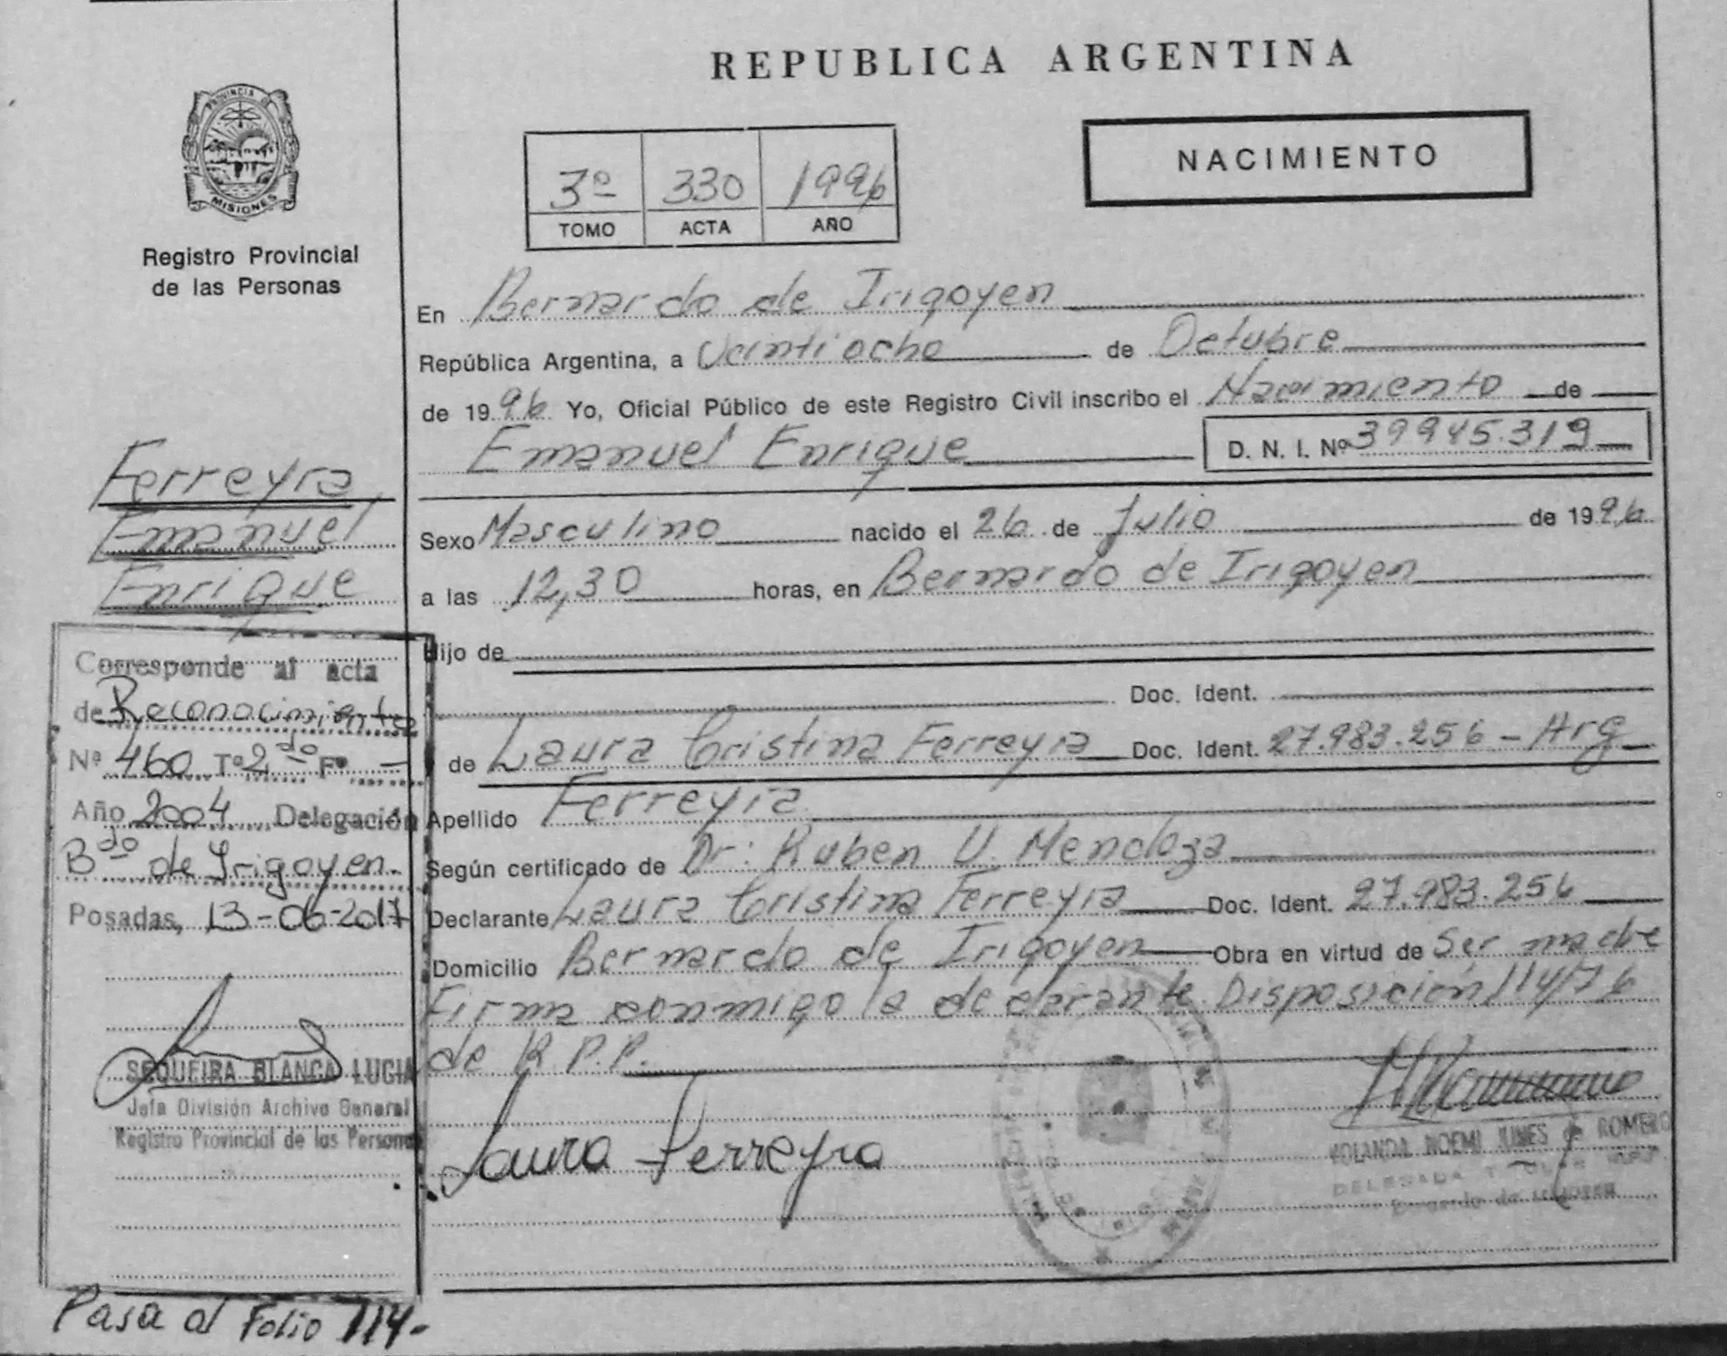 REPUBLICA ARGENTINA
PROVINCIA DE
MISIONES
Registro Provincial
de las Personas
3º 330 1996
TOMO ACTA AÑO
NACIMIENTO
En Bernardo de Irigoyen
República Argentina, a Veintiocho de Octubre
de 1996 Yo, Oficial Público de este Registro Civil inscribo el Nacimiento de
Emanuel Enrique D. N. I. Nº 39945.319
Ferreyra
Emanuel
Enrique
Sexo Masculino nacido el 26 de Julio de 1996
a las 12,30 horas, en Bernardo de Irigoyen
Hijo de
Doc. Ident.
de Laura Cristina Ferreyra Doc. Ident. 27.983.256 - Arg
Apellido Ferreyra
Según certificado de Dr: Ruben U. Mendoza
Declarante Laura Cristina Ferreyra Doc. Ident. 27.983.256
Domicilio Bernardo de Irigoyen Obra en virtud de Ser madre
Firma conmigo la declarante. Disposición 114/76
de R.P.P.
Corresponde al acta
de Reconocimiento
Nº 460 Tº 2do Fº -
Año 2004 Delegación
Bdo de Irigoyen.
Posadas, 13-06-2017
SEQUEIRA BLANCA LUCIA
Jefa División Archivo General
Registro Provincial de las Personas
Laura Ferreyra
YOLANDA NOEMI de ROMERO
DELEGADA
Pasa al Folio 114-